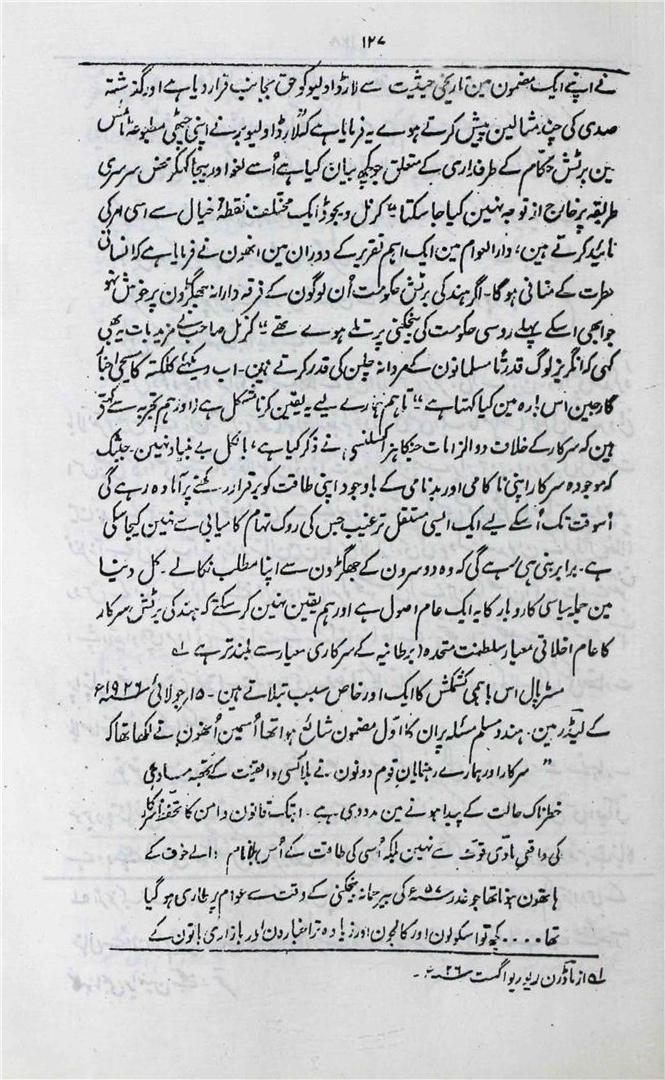 ۱۲۷
نے اپنے ایک مضمون مین تاریخی حیثیت سے لارڈ اولیو کو حق بجانب قرار دیا ہے اور گذشتہ
صدی کی چند مثالین پیش کرتے ہوے یہ فرمایا ہے کہ لارڈ اولیویر نے اپنی چٹھی مطبوعہ ٹائمس
مین برٹش حکام کے طرفداری کے متعلق جو کچھ بیان کیا ہے اُسے لغو اور بیجا کہکر محض سرسری
طریقہ پر خارج از توجہ نہین کیا جا سکتا" کرنل ویجوڈ ایک مختلف نقطۂ خیال سے اسی امر کی
تائید کرتے ہین، دار العوام مین ایک اہم تقریر کے دوران مین انھون نے فرمایا ہے کہ انسانی
فطرت کے منافی ہو گا۔ اگر ہند کی برٹش حکومت اُن لوگون کے فرقہ دارانہ جھگڑون پر خوش نہو
جو ابھی اسکے پہلے روسی حکومت کی بیخکنی پر تلے ہوے تھے" کرنل صاحب نے مزید بات یہ بھی
کہی کہ انگریز لوگ قدرتًا مسلمانون کے مردانہ چلن کی قدر کرتے ہین۔ اب دیکھئے کلکتہ کا مسیحی اخبار
گارجین اس بارہ مین کیا کہتا ہے" تاہم ہمارے لیے یہ یقین کرنا مشکل ہے اور ہم تجربہ سے کہتے
ہین کہ سرکار کے خلاف وہ الزامات جنکا ہز اکسلنسی نے ذکر کیا ہے، بالکل بے بنیاد نہین۔ جبتک
کہ موجودہ سرکار اپنی ناکامی اور بدنامی کے باوجود اپنی طاقت کو برقرار رکھنے پر آمادہ رہے گی
اُسوقت تک اُسکے لیے ایک ایسی مستقل ترغیب جس کی روک تھام کامیابی سے نہین کیجا سکی
ہے۔ برابر بنی ہی رہے گی کہ وہ دوسرون کے جھگڑون سے اپنا مطلب نکالے۔ کل دنیا
مین جملہ سیاسی کاروبار کا یہ ایک عام اصول ہے اور ہم یقین نہین کر سکتے کہ ہند کی برٹش سرکار
کا عام اخلاقی معیار سلطنت متحدہ (برطانیہ کے سرکاری معیار سے بلند تر ہے ۱ھ
مسٹر پال اس باہمی کشمکش کا ایک اور خاص سبب بتلاتے ہین۔ ۱۵؍ جولائی ۱۹۲۶ء
کے لیڈر مین۔ ہندو مسلم مسئلہ پر ان کا اوّل مضمون شائع ہوا تھا اُسمین اُنھون نے لکھا تھا کہ
" سرکار اور ہمارے رہنمایان قوم دونون نے بلا کسی واقفیت کے
خطرناک حالت کے پیدا ہونے مین مدد دی ہے۔ ابتک قانون و امن کا تحفظ سرکار
کی واقعی مادّی قوت سے نہین بلکہ اُسی کی طاقت کے اُس بڑے نام اور خوف کے
ہاتھون ہوتا تھا جو غدر ۵۷ء کی بیرحمانہ بیخکنی کے وقت سے عوام پر طاری ہو گیا
تھا.... کچھ تو اسکولون اور کالجون اور زیادہ تر اخبارون اور بازاری باتون کے
۱ھ از ماڈرن ریویو اگست ۲۶ء۔